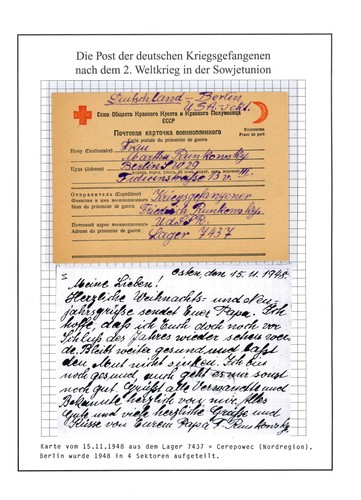 Die Post der deutschen Kriegsgefangenen
nach dem 2. Weltkrieg in der Sowjetunion
Deutschland – Berlin
USA-Sekt.
Союз Обществ Красного Креста и Красного Полумесяца
СССР
Почтовая карточка военнопленного
Carte postale du prisonnier de guerre
Бесплатно
Franc de port
Кому (Destinataire) Frau
Martha Runkowsky
Куда (Adresse) Berlin SW 29
Fidicinstraße
Отправитель (Expéditeur) Kriegsgefangener
Фамилия и имя военнопленного
Nom du prisonnier de guerre Friedrich Runkowsky
Почтовый адрес военнопленного UdSSR
Adresse du prisonnier de guerre Lager 7437
Osten, den 15.11.1948
Meine Lieben!
Herzliche Weihnachts- und Neu-
jahrsgrüße sendet Euer Papa. Ich
hoffe, daß ich Euch doch noch vor
Schluß des Jahres wieder sehen wer-
de. Bleibt weiter gesund und laßt
den Mut nicht sinken. Ich bin
noch gesund, auch geht es mir sonst
noch gut. Grüßt alle Verwandte und
Bekannte herzlich von mir. Alles
Gute und viele herzliche Grüße und
Küsse von Eurem Papa F. Runkowsky
Karte vom 15.11.1948 aus dem Lager 7437 = Cerepowec (Nordregion).
Berlin wurde 1948 in 4 Sektoren aufgeteilt.